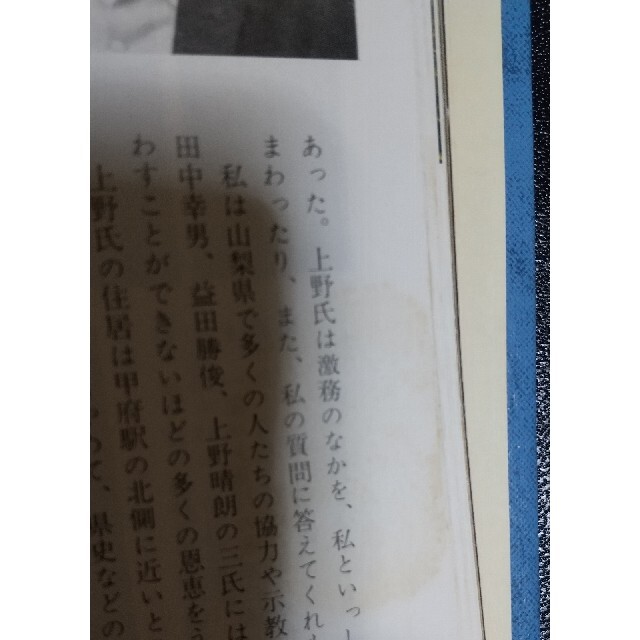 あった。上野氏は激務のなかを、私といっし
まわったり、また、私の質問に答えてくれ
私は山梨県で多くの人たちの協力や示教
田中幸男、益田勝俊、上野晴朗の三氏には
わすことができないほどの多くの恩恵をう
上野氏の住居は甲府駅の北側に近いと
て、県史などの